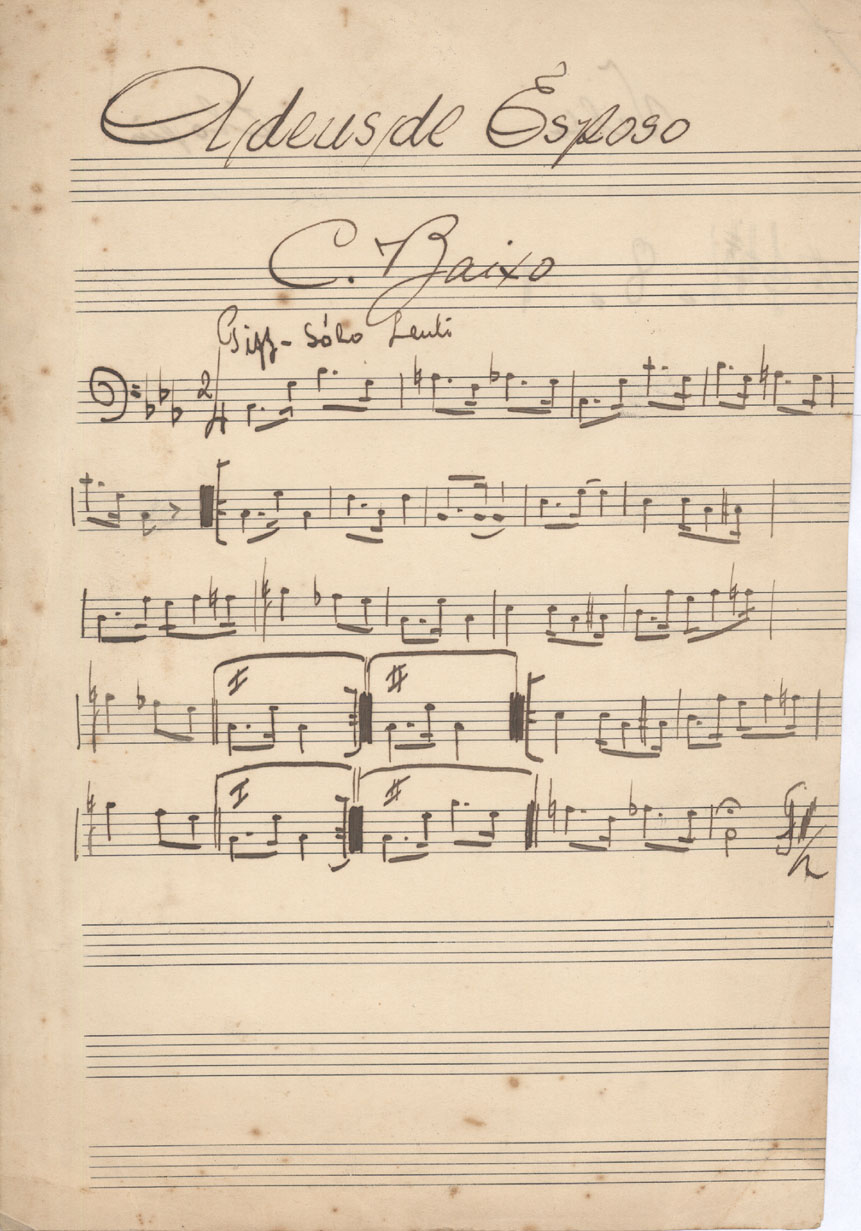 Adeus de Esposo
C. Baixo
Sólo Lenti
2/4
I II
I II